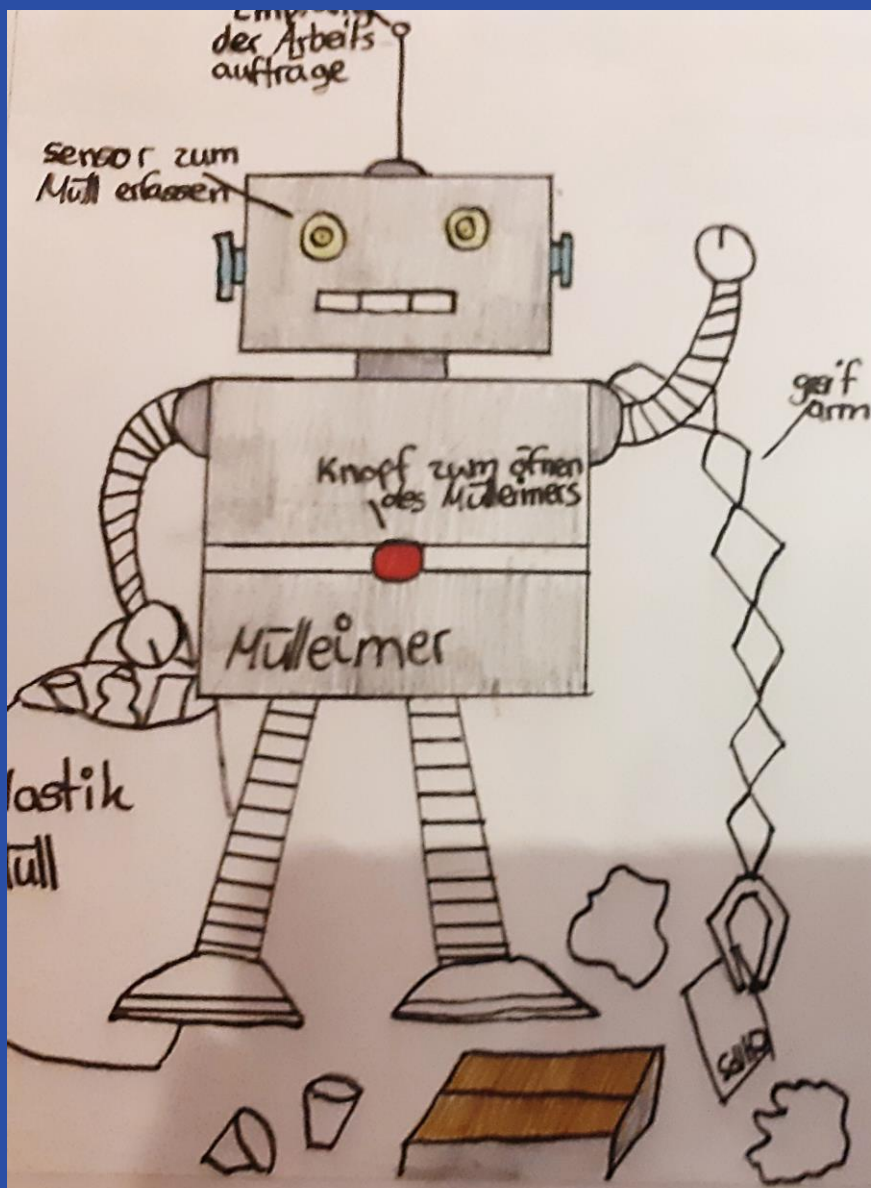 der Arbeits
aufträge
sensor zum
Müll erfassen
greif
arm
Knopf zum öfnen
des Mülleimers
Mülleimer
lastik
üll